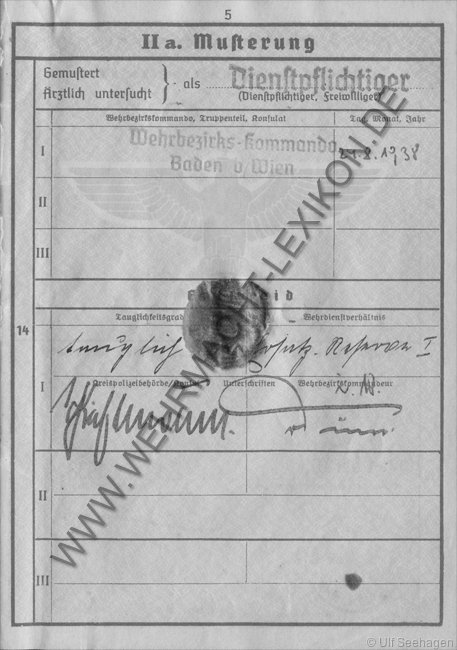 5
IIa. Musterung
Gemustert
Ärztlich untersucht } als Dienstpflichtiger
(Dienstpflichtiger, Freiwilliger)
Wehrbezirkskommando, Truppenteil, Konsulat Tag, Monat, Jahr
I Wehrbezirks-Kommando 24.8.1938
Baden b/Wien
II
III
14
Tauglichkeitsgrad Wehrdienstverhältnis
tauglich Ersatz-Reserve I
I Kreispolizeibehörde/Konsul Unterschriften Wehrbezirkskommandeur
II
III
WWW.WEHRMACHT-LEXIKON.DE
© Ulf Seehagen